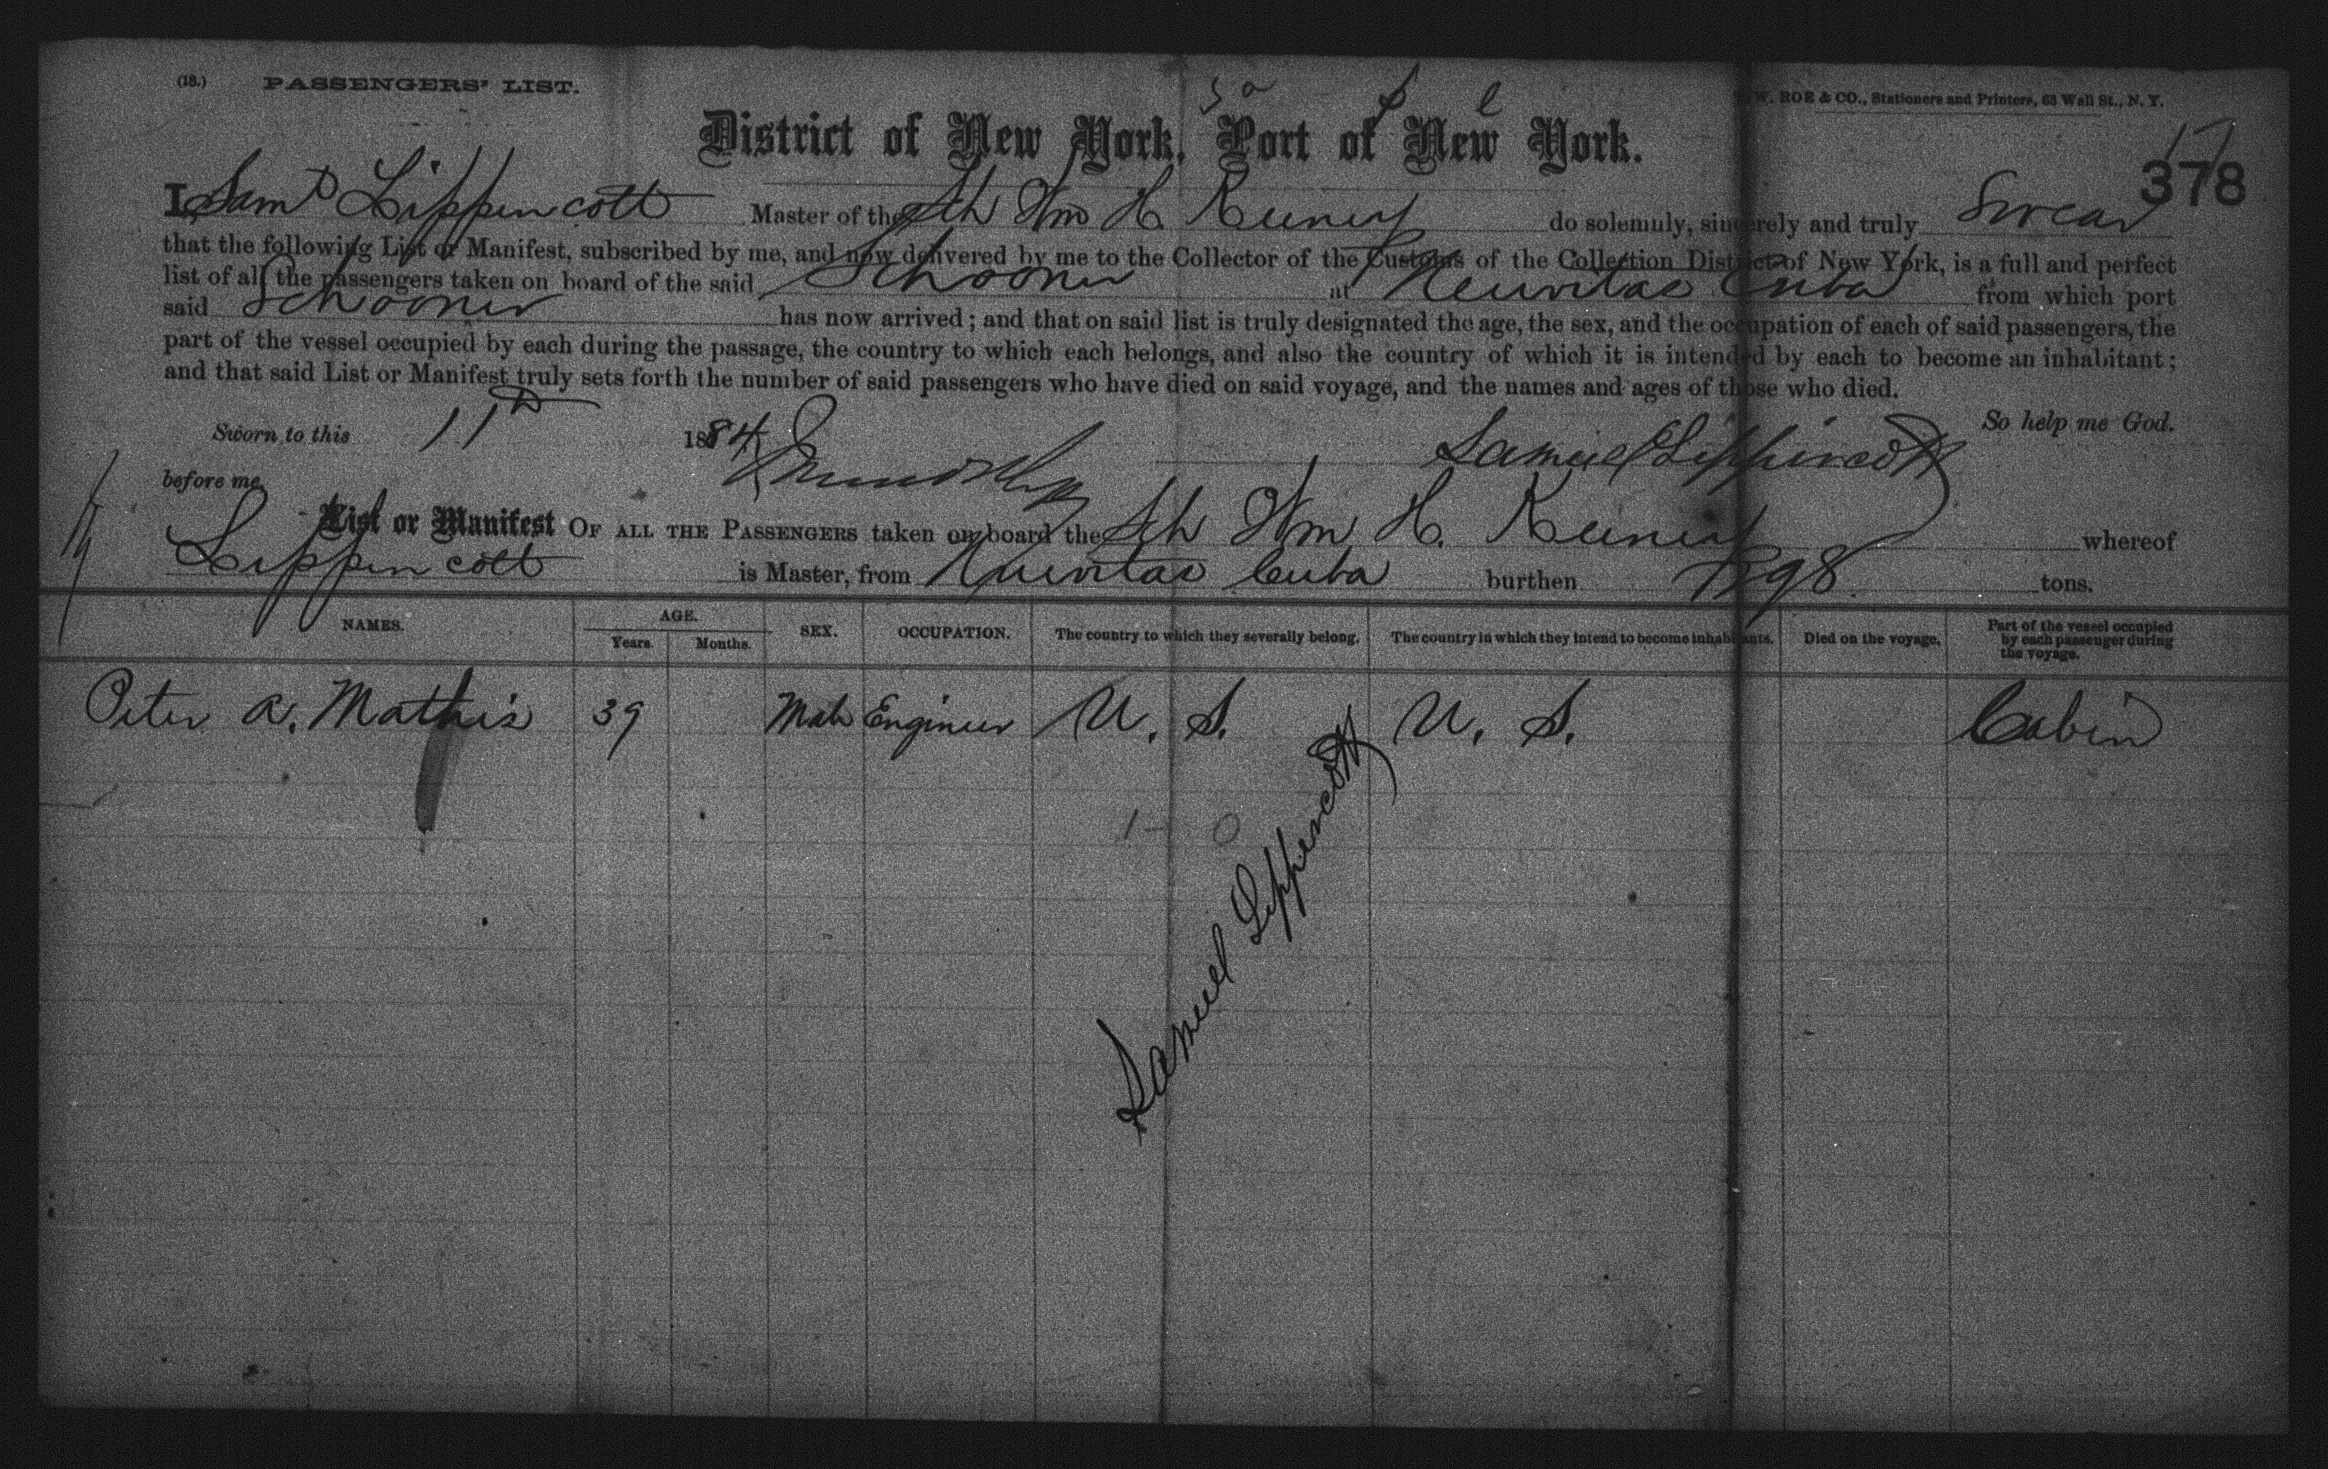 (18.) PASSENGERS' LIST.
W. ROE & CO., Stationers and Printers, 63 Wall St., N. Y.
District of New York, Port of New York.
17
378
I Saml Lippincott Master of the Sch Wm H Keeney do solemnly, sincerely and truly Swear
that the following List or Manifest, subscribed by me, and now delivered by me to the Collector of the Customs of the Collection District of New York, is a full and perfect
list of all the passengers taken on board of the said Schooner at Nuevitas Cuba from which port
said Schooner has now arrived; and that on said list is truly designated the age, the sex, and the occupation of each of said passengers, the
part of the vessel occupied by each during the passage, the country to which each belongs, and also the country of which it is intended by each to become an inhabitant;
and that said List or Manifest truly sets forth the number of said passengers who have died on said voyage, and the names and ages of those who died.
So help me God.
Sworn to this 11th 1884
Samuel Lippincott
before me,
List or Manifest OF ALL THE PASSENGERS taken on board the Sch Wm H. Keeney whereof
Lippincott is Master, from Nuevitas Cuba burthen 398 tons.
NAMES. AGE. SEX. OCCUPATION. The country to which they severally belong. The country in which they intend to become inhabitants. Died on the voyage. Part of the vessel occupied by each passenger during the voyage.
Years. Months.
Peter A. Mathis 39 Male Engineer U. S. U. S. Cabin
1 - 0
Samuel Lippincott